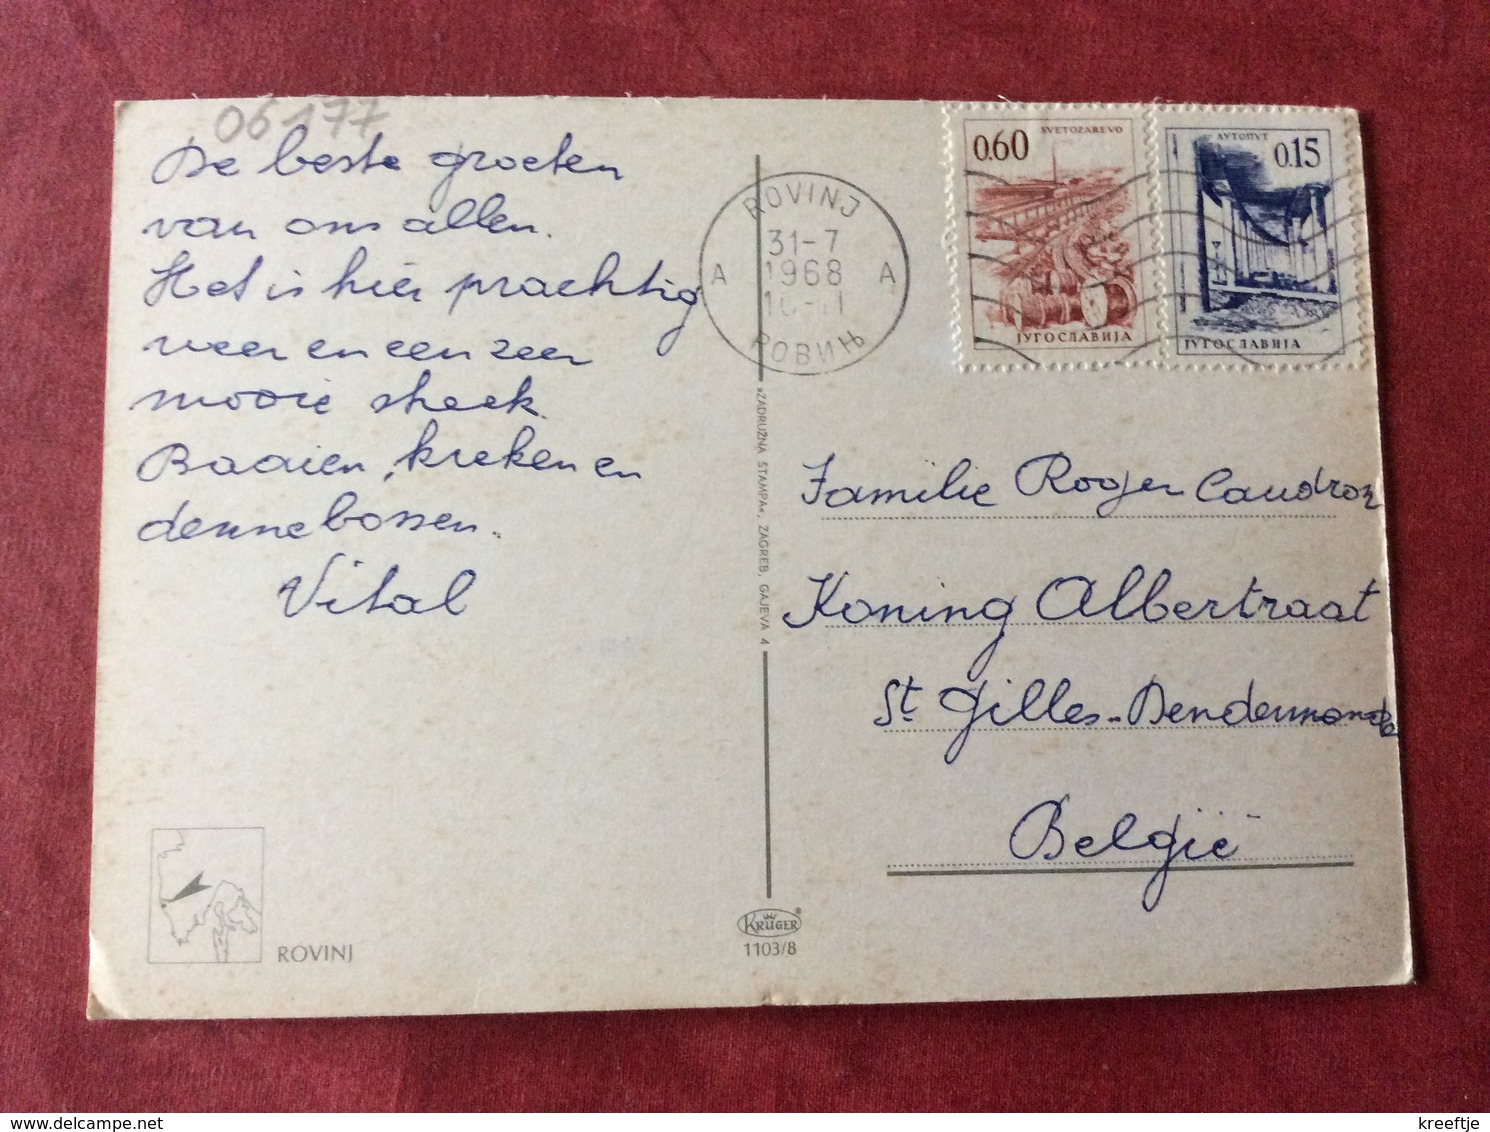 06177
De beste groeten
van ons allen.
Het is hier prachtig
weer en een zeer
mooie streek.
Baaien, kreken en
dennebossen.
Vital
ROVINJ
31-7
1968
A A
РОВИЊ
SVETOZAREVO
0.60
ЈУГОСЛАВИЈА
АУТОПУТ
0.15
ЈУГОСЛАВИЈА
»ZADRUŽNA ŠTAMPA«, ZAGREB, GAJEVA 4
Familie Roger Caudron
Koning Albertraat
St Gilles-Dendermonde
België
ROVINJ
KRÜGER®
1103/8
kreeftje